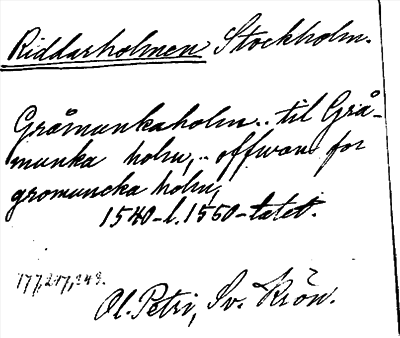 Riddarholmen Stockholm.
Gråmunkaholm.. til Grå-
munka holm, .. offwan for
gromuncka holm,
1540-l. 1550-talet.
177, 247, 249.
Ol. Petri, Sv. Krön.